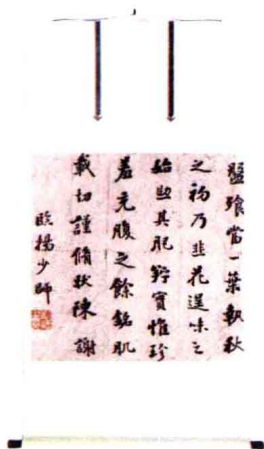 盤飱當一葉報秋
之初乃韭花逞味之
始助其肥羜實惟珍
羞充腹之餘銘肌
載切謹脩狀陳謝
臨楊少師